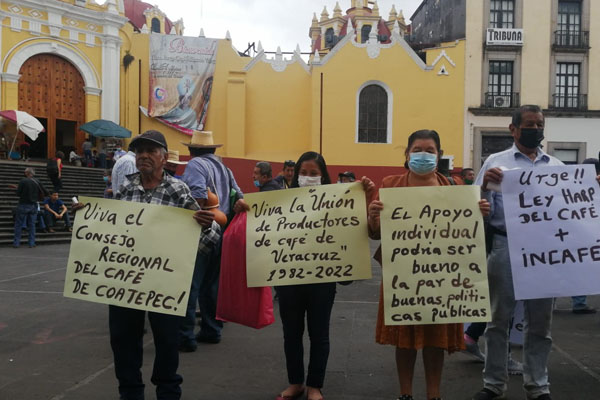 TRIBUNA
Viva el
Consejo
Regional
del Café
de Coatepec!
Viva la Unión
de Productores
de café de
Veracruz"
1982-2022
El Apoyo
individual
podría ser
bueno a
la par de
buenas, políti-
cas públicas
Urge!!
Ley HARP
del café
+
incafé